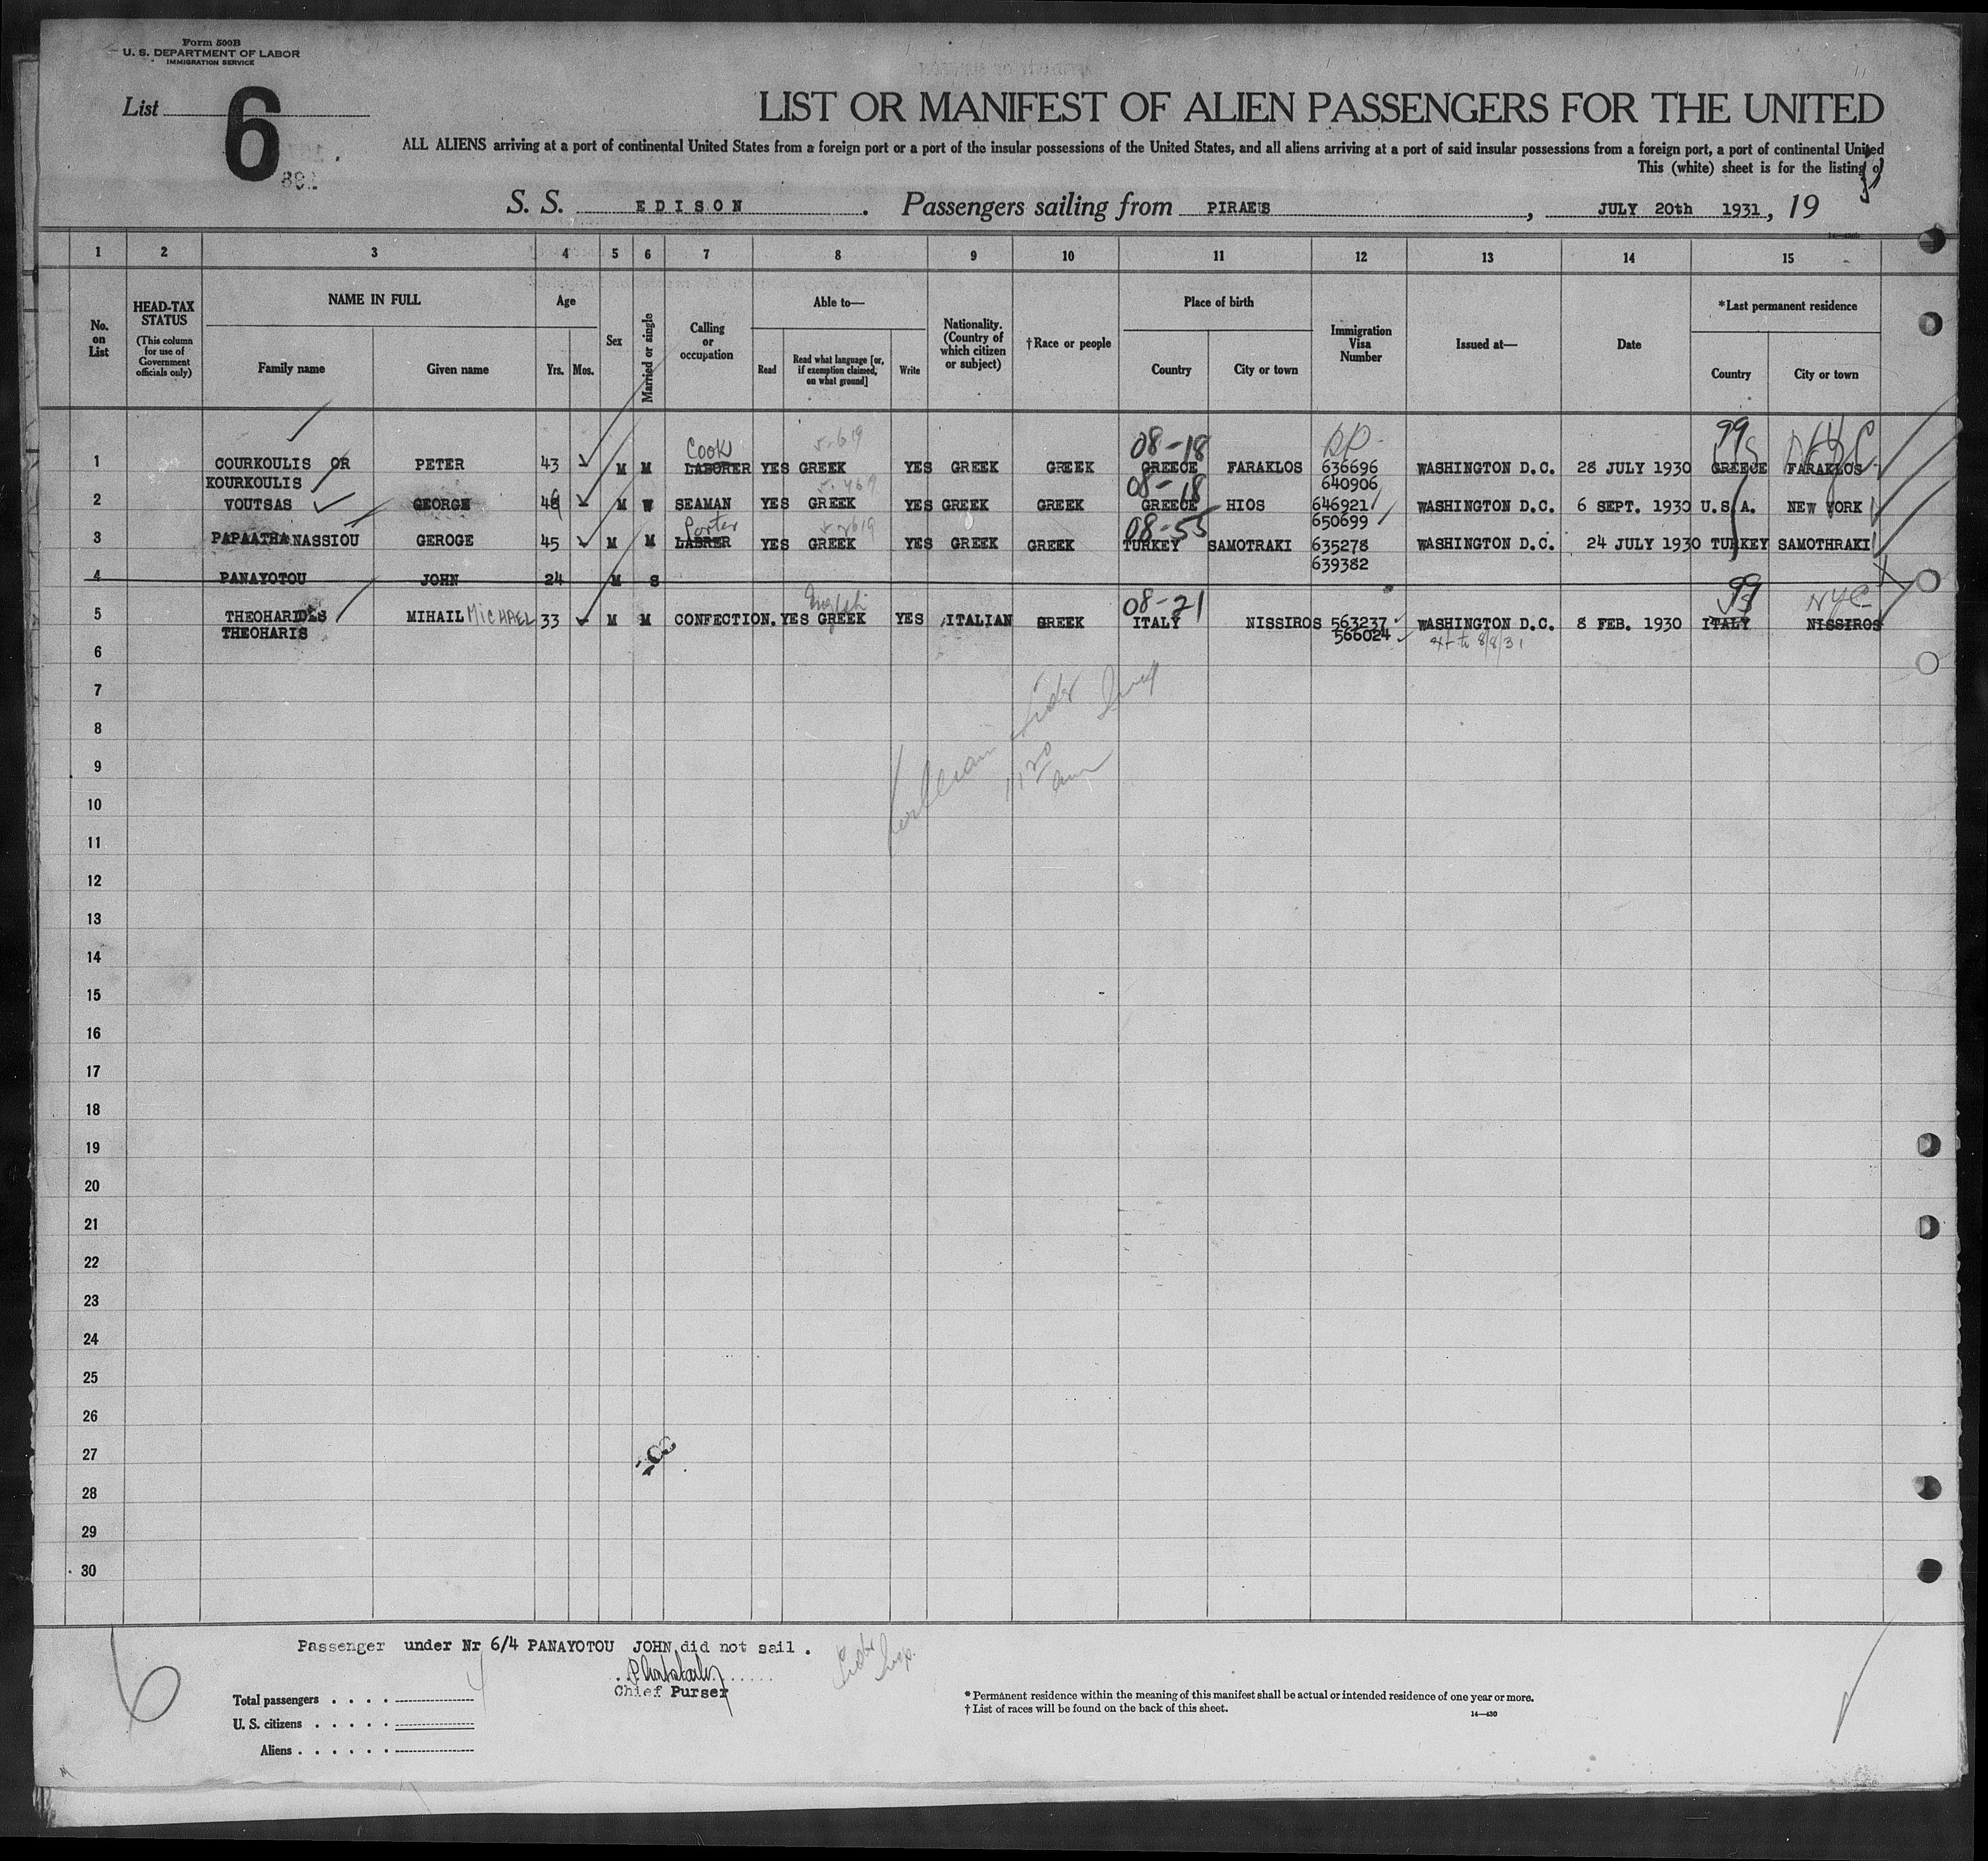 Form 500B
U. S. DEPARTMENT OF LABOR
IMMIGRATION SERVICE
List 6
LIST OR MANIFEST OF ALIEN PASSENGERS FOR THE UNITED
ALL ALIENS arriving at a port of continental United States from a foreign port or a port of the insular possessions of the United States, and all aliens arriving at a port of said insular possessions from a foreign port, a port of continental United
This (white) sheet is for the listing of
S. S. EDISON. Passengers sailing from PIRAEUS, JULY 20th 1931, 19
1 2 3 4 5 6 7 8 9 10 11 12 13 14 15
No. on List
HEAD-TAX STATUS
(This column for use of Government officials only)
NAME IN FULL
Family name
Given name
Age
Yrs. Mos.
Sex
Married or single
Calling or occupation
Able to—
Read
Read what language [or, if exemption claimed, on what ground]
Write
Nationality. (Country of which citizen or subject)
†Race or people
Place of birth
Country
City or town
Immigration Visa Number
Issued at—
Date
*Last permanent residence
Country
City or town
Cook 5-619 08-18 99
1 COURKOULIS OR PETER 43 M M LABORER YES GREEK YES GREEK GREEK GREECE FARAKLOS 636696 WASHINGTON D.C. 28 JULY 1930 GREECE FARAKLOS
KOURKOULIS 640906
08-18
2 VOUTSAS GEORGE 46 M W SEAMAN YES GREEK YES GREEK GREEK GREECE HIOS 646921 WASHINGTON D.C. 6 SEPT. 1930 U.S.A. NEW YORK
650699
Porter 08-55
3 PAPAATHANASSIOU GEROGE 45 M M LABRER YES GREEK YES GREEK GREEK TURKEY SAMOTRAKI 635278 WASHINGTON D.C. 24 JULY 1930 TURKEY SAMOTHRAKI
639382
4 PANAYOTOU JOHN 24 M S
English 08-21 99 US NYC
5 THEOHARIDES MIHAIL MICHAEL 33 M M CONFECTION. YES GREEK YES ITALIAN GREEK ITALY NISSIROS 563237 WASHINGTON D.C. 8 FEB. 1930 ITALY NISSIROS
THEOHARIS 566024 ext to 8/8/31
6
7
8
9
10
11
12
13
14
15
16
17
18
19
20
21
22
23
24
25
26
27
28
29
30
Passenger under Nr 6/4 PANAYOTOU JOHN did not sail.
Chief Purser
6
Total passengers 4
U. S. citizens
Aliens
* Permanent residence within the meaning of this manifest shall be actual or intended residence of one year or more.
† List of races will be found on the back of this sheet.
14—430